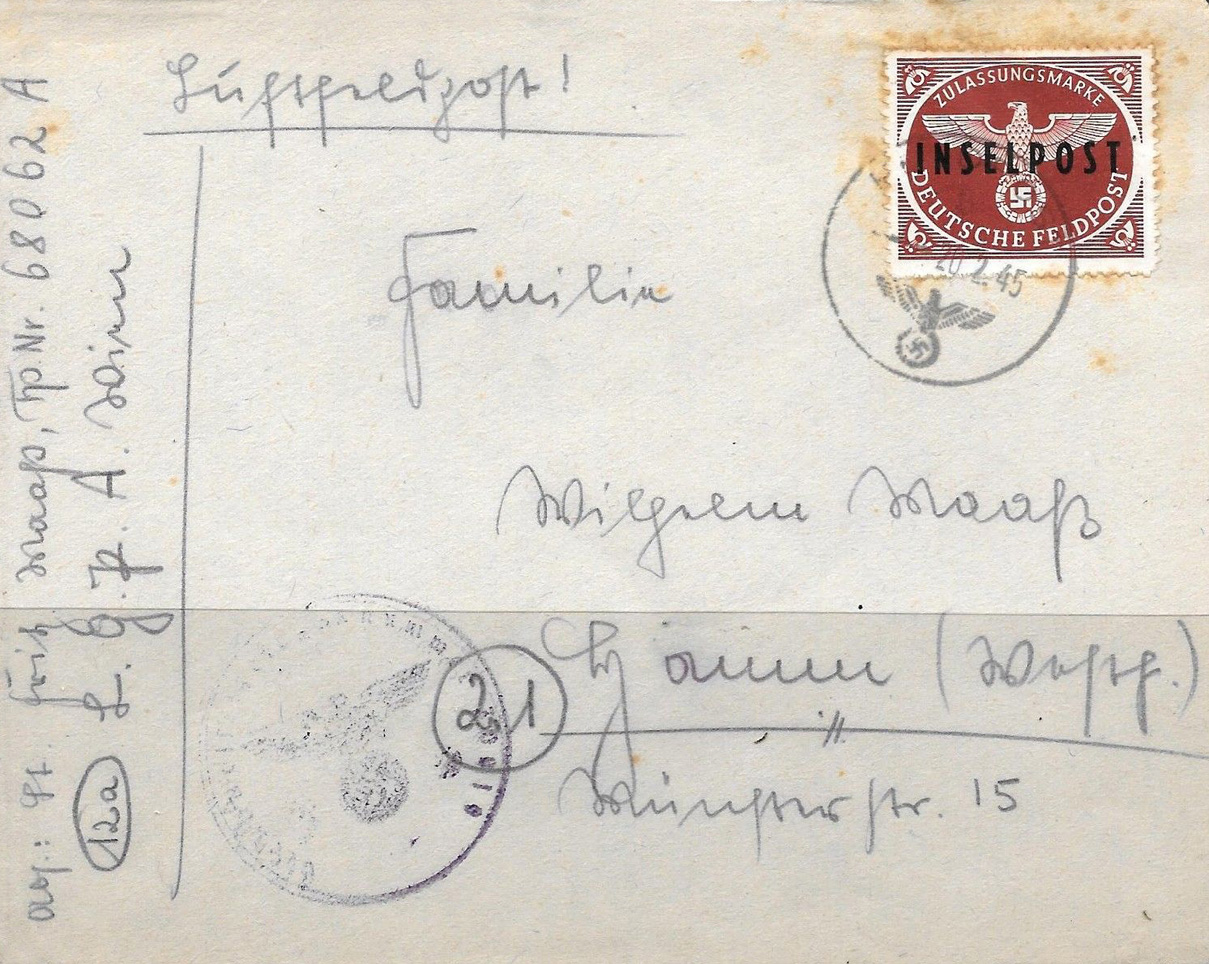 Luftfeldpost!
ZULASSUNGSMARKE
INSELPOST
DEUTSCHE FELDPOST
20.2.45
Familie
Wilhelm Maaß
21 Hamm (Westf.)
Münsterstr. 15
Abs.: Fritz Maaß, Fp. Nr. 68062 A
12a L. G. P. A. Wien